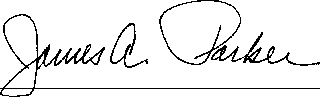 James A. Parker